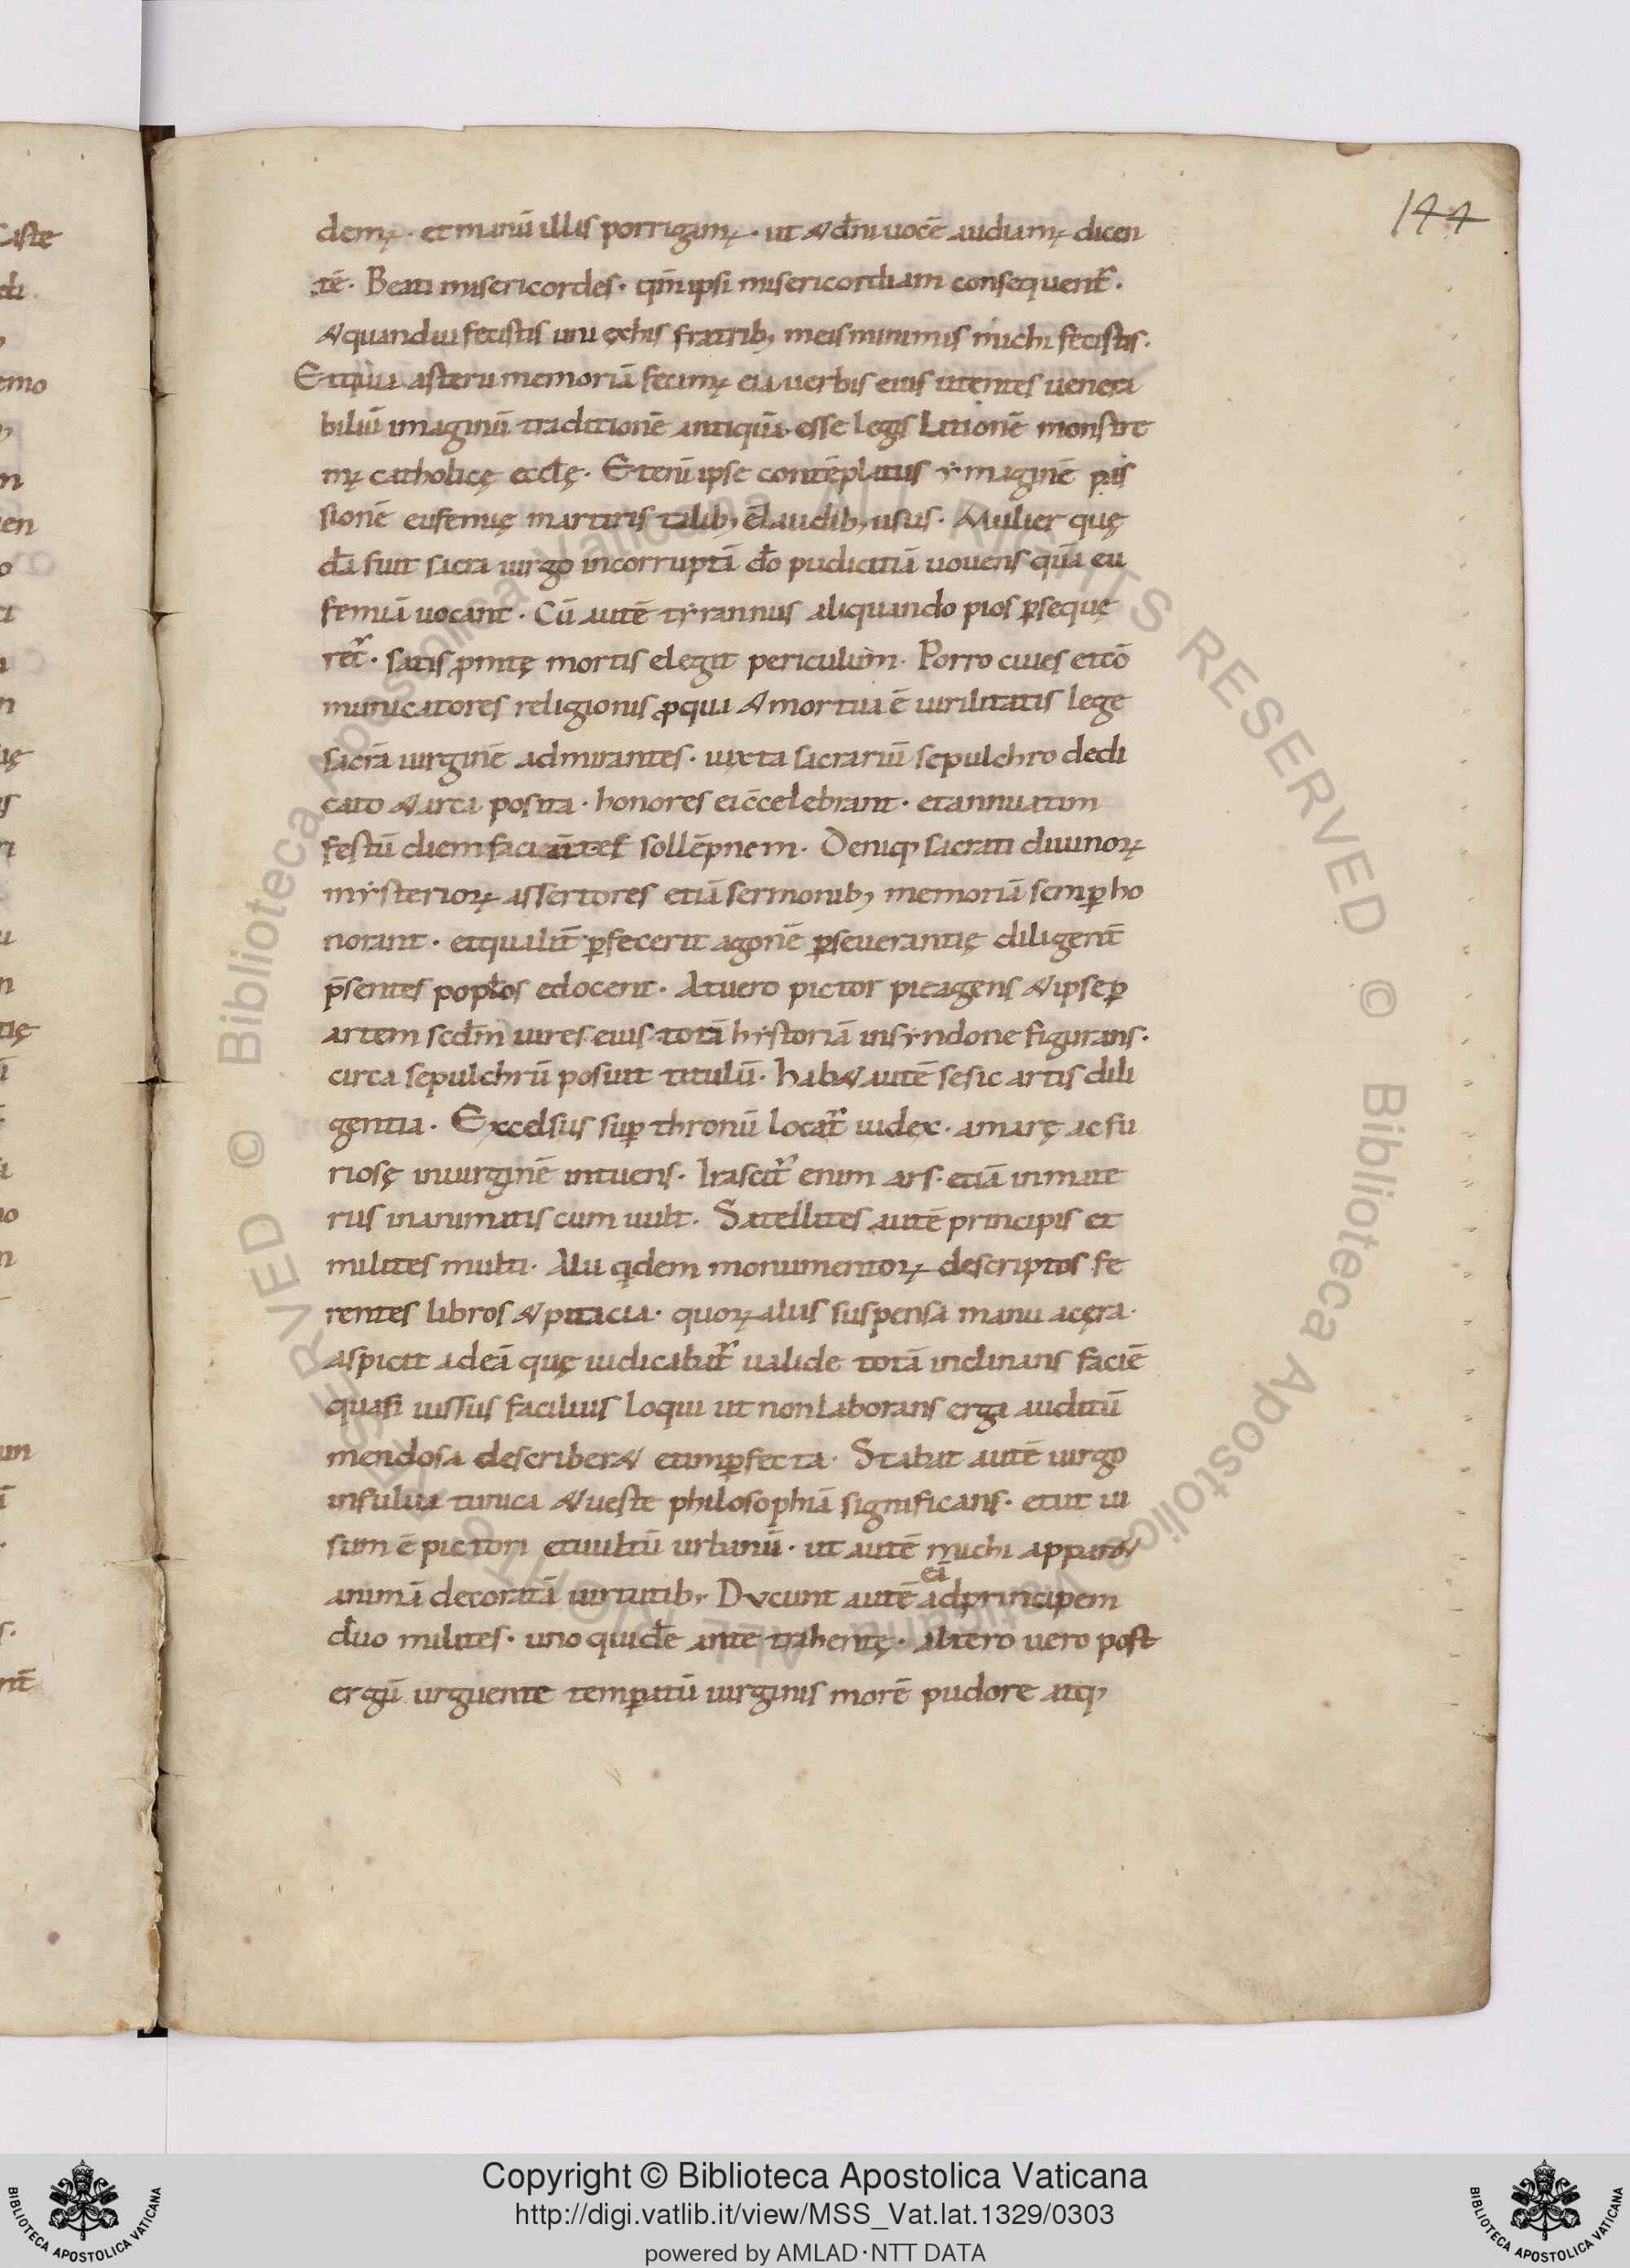 144
demꝰ · et manū illis porrigamꝰ · ut & dn̄i uocē audiamꝰ dicen
tē · Beati misericordes · qm̄ ipsi misericordiam consequent᷑ ·
& quandiu fecistis uni ex his fratrib; meis minimis michi fecistis ·
Et quia asterii memoriā fecimꝰ eia uerbis eius utentes uenera
biliū imaginū traditionē antiquā esse legis lationē monstre
mꝰ catholicę eccłę · Etenī ipse contēplatus ymaginē pas
sionē eufemię martiris talib; ē laudib; usus · Mulier quę
dā fuit sacra uirgo incorruptā đo pudicitiā uouens quā eu
femiā uocant · Cū autē tyrannus aliquando pios ꝑsequę
ret᷑ · satis ꝓmtę mortis elegit periculum · Porro ciues et cō
municatores religionis ꝓ qua & mortua ē uirilitatis lege
sacrā uirginē admirantes · iuxta sacrariū sepulchro dedi
cato & arca posita · honores ei c̄celebrant · et annuatim
festū diem faciunt eī sollēpnem · Deniq; sacrati diuinoꝝ
mysterioꝝ assertores etiā sermonib; memoriā semꝑ ho
norant · et qualit̄ ꝑfecerit agonē ꝑseuerantię diligent̄
p̄sentes popłos edocent · At uero pictor pie agens & ipse ꝑ
artem scđm uires eius totā hystoriā in syndone figurans ·
circa sepulchrū posuit titulū · hab& autē se sic artis dili
gentia · Excelsus suꝑ thronū locat᷑ iudex · amarę ac fu
riosę in uirginē intuens · Irascit᷑ enim ars · etiā in mate
riis inanimatis cum uult · Satellites autē principis et
milites multi · Alii qͥdem monumentoꝝ descriptos fe
rentes libros & pitacia · quoꝝ alius suspensa manu a cęra ·
aspicit ad eā quę iudicabat᷑ ualide totā inclinans faciē
quasi iussus facilius loqui ut non laborans erga auditū
mendosa describer& et imꝑfecta · Stabat autē uirgo
in fulua tunica & ueste philosophiā significans · et ut ui
sum ē pictori et uultū urbanū · ut autē michi appar&
animā decoratā uirtutib; Ducunt autē eā ad principem
duo milites · uno quidē ante trahentę · altero uero post
ergū urguente temꝑatū uirginis morē pudore atq;
Copyright © Biblioteca Apostolica Vaticana
http://digi.vatlib.it/view/MSS_Vat.lat.1329/0303
powered by AMLAD•NTT DATA
BIBLIOTECA APOSTOLICA VATICANA
BIBLIOTECA APOSTOLICA VATICANA